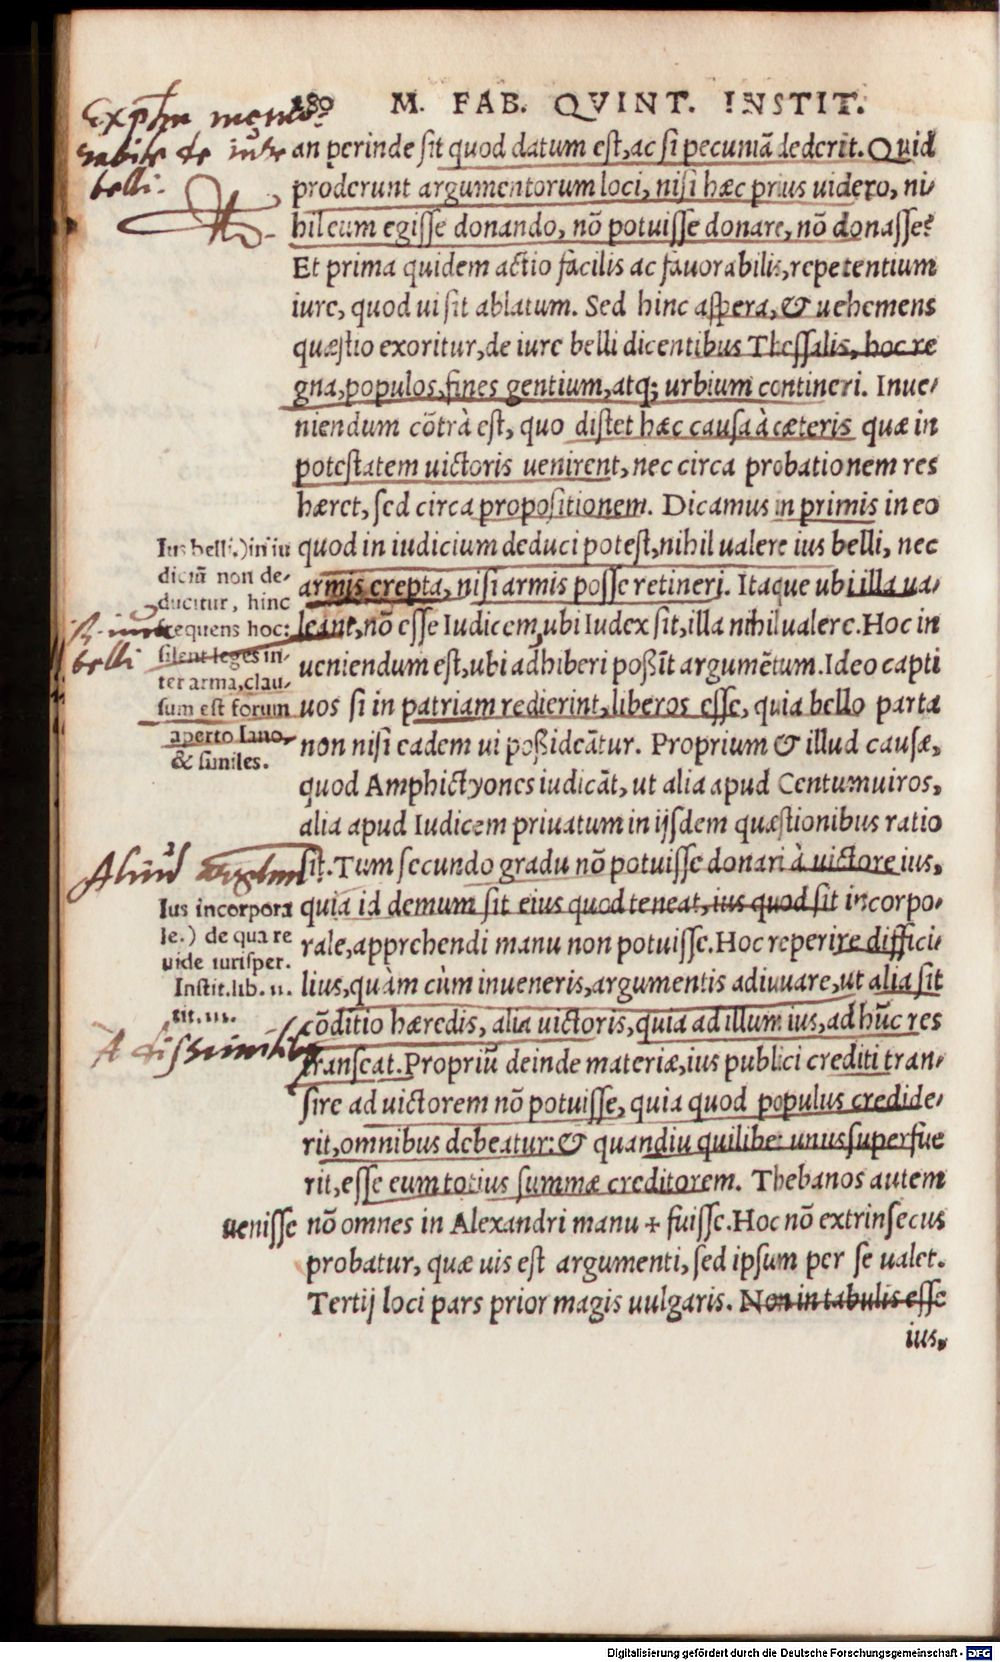 280 M. FAB. QVINT. INSTIT.
Exp̃lm memo-
rabile de iure
belli.
an perinde ſit quod datum eſt, ac ſi pecuniā dederit. Quid
proderunt argumentorum loci, niſi hæc prius uidero, ni-
hil eum egiſſe donando, nō potuiſſe donare, nō donaſſe?
Et prima quidem actio facilis ac fauorabilis, repetentium
iure, quod ui ſit ablatum. Sed hinc aſpera, & uehemens
quæſtio exoritur, de iure belli dicentibus Theſſalis, hoc re
gna, populos, fines gentium, atq; urbium contineri. Inue-
niendum cōtrà eſt, quo diſtet hæc cauſa à cæteris quæ in
poteſtatem uictoris uenirent, nec circa probationem res
hæret, ſed circa propoſitionem. Dicamus in primis in eo
quod in iudicium deduci poteſt, nihil ualere ius belli, nec
armis erepta, niſi armis poſſe retineri. Itaque ubi illa ua-
leant, nō eſſe Iudicem, ubi Iudex ſit, illa nihil ualere. Hoc in
ueniendum eſt, ubi adhiberi poßīt argumētum. Ideo capti
uos ſi in patriam redierint, liberos eſſe, quia bello parta
non niſi eadem ui poßideātur. Proprium & illud cauſæ,
quod Amphictyones iudicāt, ut alia apud Centumuiros,
alia apud Iudicem priuatum in ijſdem quæſtionibus ratio
ſit. Tum ſecundo gradu nō potuiſſe donari à uictore ius,
quia id demum ſit eius quod teneat, ius quod ſit incorpo-
rale, apprehendi manu non potuiſſe. Hoc reperire diffici-
lius, quàm cùm inueneris, argumentis adiuuare, ut alia ſit
cōditio hæredis, alia uictoris, quia ad illum ius, ad hūc res
tranſeat. Propriū deinde materiæ, ius publici crediti tran-
ſire ad uictorem nō potuiſſe, quia quod populus credide-
rit, omnibus debeatur: & quandiu quilibet unus ſuperfue
rit, eſſe eum totius ſummæ creditorem. Thebanos autem
nō omnes in Alexandri manu + fuiſſe. Hoc nō extrinſecus
probatur, quæ uis eſt argumenti, ſed ipſum per ſe ualet.
Tertij loci pars prior magis uulgaris. Non in tabulis eſſe
ius,
Ius belli.) in iu
diciū non de-
ducitur, hinc
frequens hoc:
ſilent leges in-
ter arma, clau-
ſum eſt forum
aperto Iano,
& ſimiles.
iure
belli
Aliud
Ius incorpora
le.) de qua re
uide iurisper.
Inſtit. lib. ii.
tit. iii.
A diſsimilibus
ueniſſe
Digitalisierung gefördert durch die Deutsche Forschungsgemeinschaft - DFG